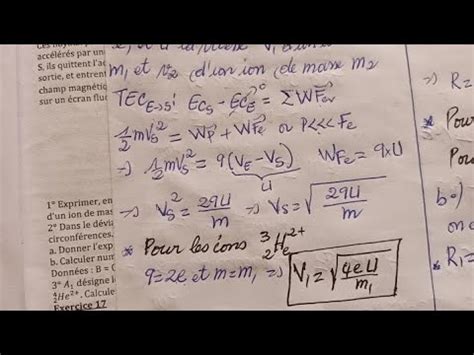 Les noyau
accélérés par un
S, ils quittent l'ac
sortie, et entrent
champ magnétiq
sur un écran fluo
1° Exprimer, en
d'un ion de mas
2° Dans le dévia
circonférences.
a. Donner l'exp
b. Calculer num
Données : B = 0
3° A₁ désigne l
⁴₂He²⁺. Calcule
Exercice 17
m₁ et v₂ (d'un ion (de masse m₂
TEC E→S : Ec_S - Ec_E = ΣW F_ex
1/2 mV_S² = W P + W Fe or P<<< Fe
→ 1/2 mV_S² = q(V_E - V_S) W Fe = q×U
U
→ V_S² = 2qU/m → V_S = √(2qU/m)
* Pour les ions ³₂He²⁺
q = 2e et m = m₁ ⇒ V₁ = √(4eU/m₁)
→ R =
* Pour
Pou
b °)
R₁ =